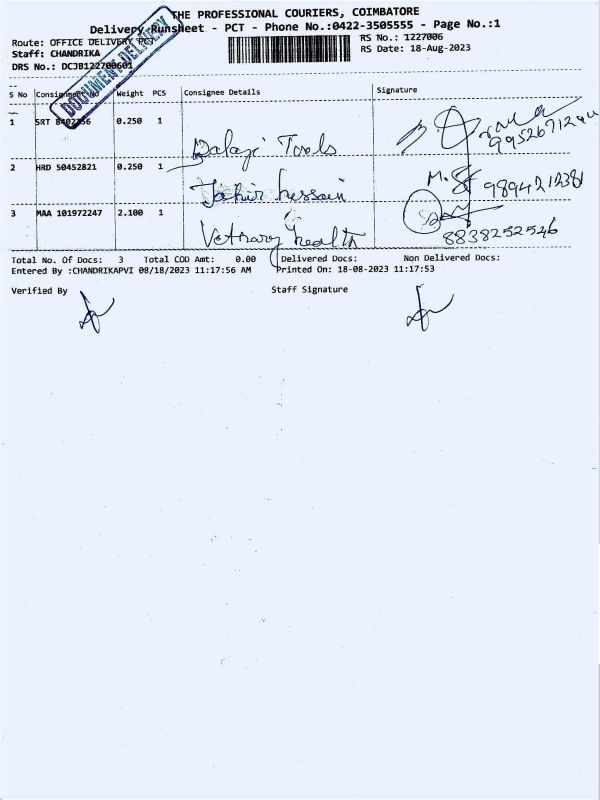 THE PROFESSIONAL COURIERS, COIMBATORE
Delivery Runsheet - PCT - Phone No.:0422-3505555 - Page No.:1
Route: OFFICE DELIVERY PCT
RS No.: 1227006
Staff: CHANDRIKA
RS Date: 18-Aug-2023
DRS No.: DCJB122700601
DOCUMENT DELIVERY
S No Consignment No Weight PCS Consignee Details Signature
1 SRT 0.250 1 Balaji Tools
2 HRD 50452821 0.250 1 Jahir hussain M. 9894212381
3 MAA 101972247 2.100 1 health 8838252546
Total No. Of Docs: 3 Total COD Amt: 0.00 Delivered Docs: Non Delivered Docs:
Entered By :CHANDRIKAPVI 08/18/2023 11:17:56 AM Printed On: 18-08-2023 11:17:53
Verified By Staff Signature